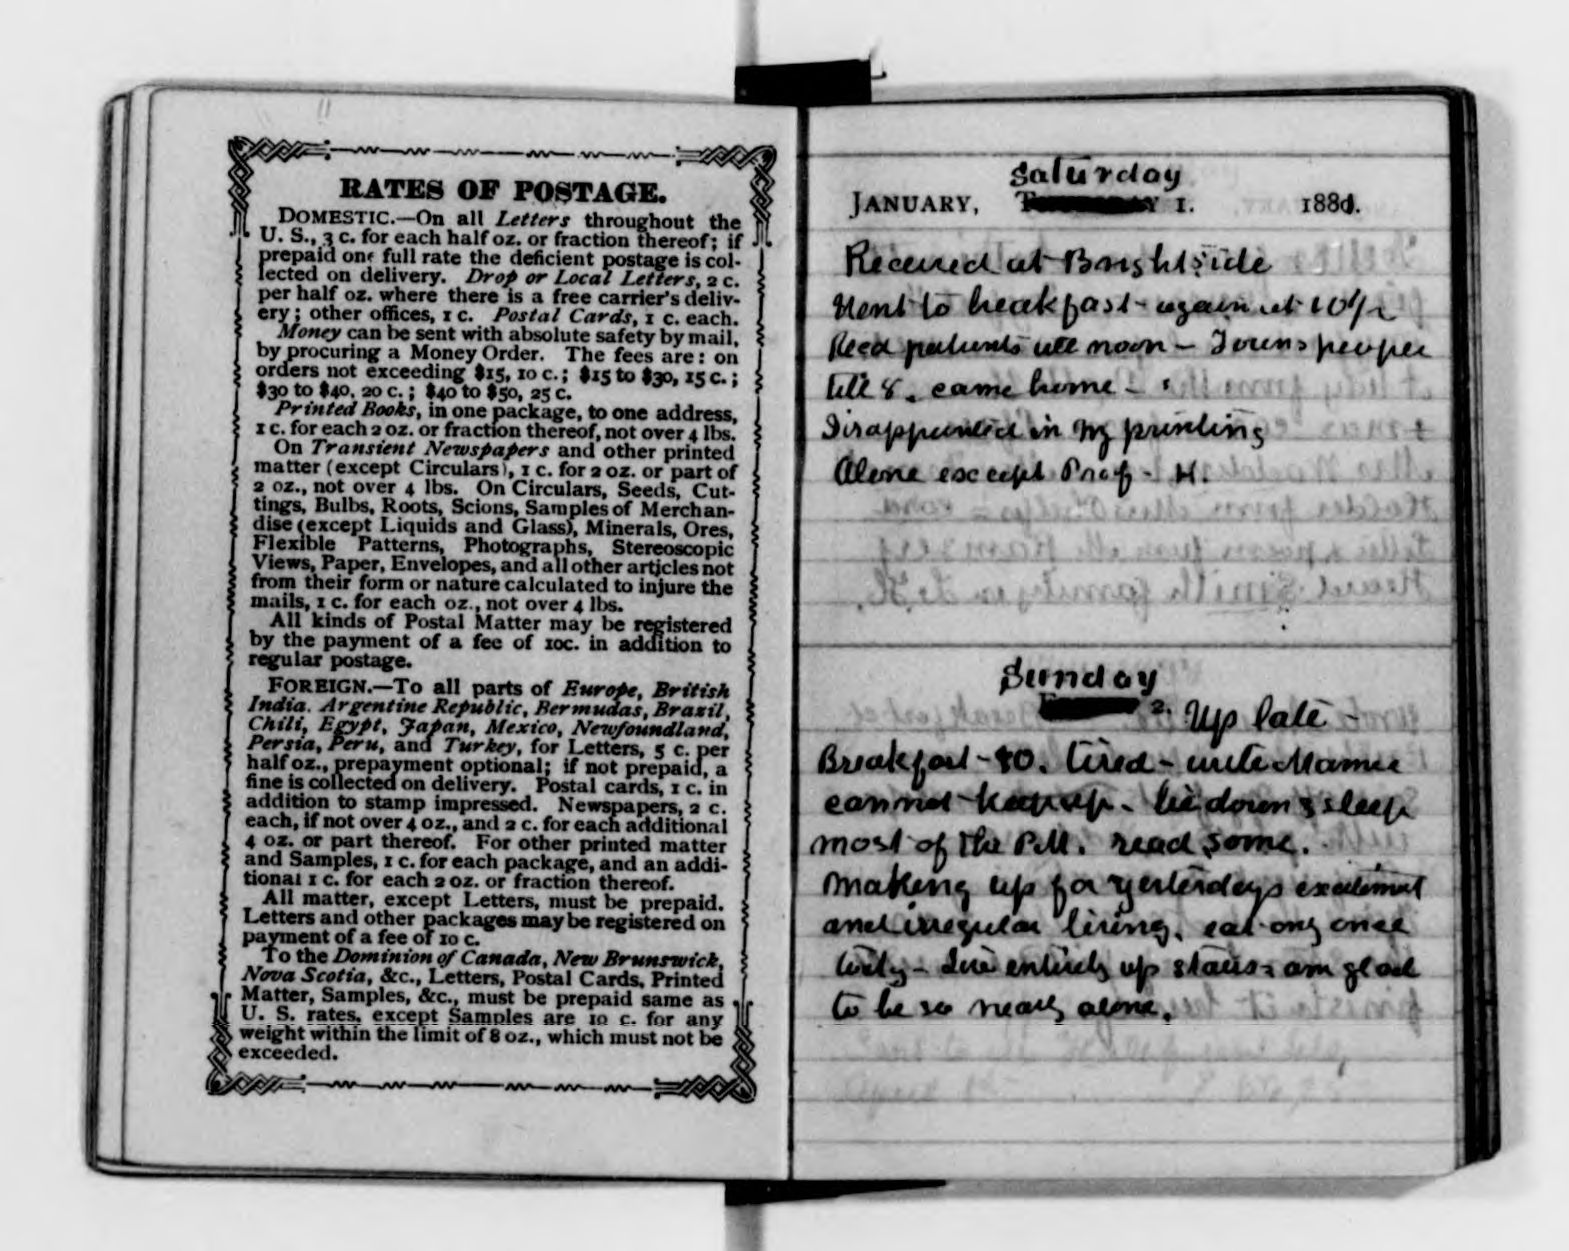 RATES OF POSTAGE.
DOMESTIC.—On all Letters throughout the
U. S., 3 c. for each half oz. or fraction thereof; if
prepaid one full rate the deficient postage is col-
lected on delivery. Drop or Local Letters, 2 c.
per half oz. where there is a free carrier's deliv-
ery; other offices, 1 c. Postal Cards, 1 c. each.
Money can be sent with absolute safety by mail,
by procuring a Money Order. The fees are: on
orders not exceeding $15, 10 c.; $15 to $30, 15 c.;
$30 to $40, 20 c.; $40 to $50, 25 c.
Printed Books, in one package, to one address,
1 c. for each 2 oz. or fraction thereof, not over 4 lbs.
On Transient Newspapers and other printed
matter (except Circulars), 1 c. for 2 oz. or part of
2 oz., not over 4 lbs. On Circulars, Seeds, Cut-
tings, Bulbs, Roots, Scions, Samples of Merchan-
dise (except Liquids and Glass), Minerals, Ores,
Flexible Patterns, Photographs, Stereoscopic
Views, Paper, Envelopes, and all other articles not
from their form or nature calculated to injure the
mails, 1 c. for each oz., not over 4 lbs.
All kinds of Postal Matter may be registered
by the payment of a fee of 10c. in addition to
regular postage.
FOREIGN.—To all parts of Europe, British
India, Argentine Republic, Bermudas, Brazil,
Chili, Egypt, Japan, Mexico, Newfoundland,
Persia, Peru, and Turkey, for Letters, 5 c. per
half oz., prepayment optional; if not prepaid, a
fine is collected on delivery. Postal cards, 1 c. in
addition to stamp impressed. Newspapers, 2 c.
each, if not over 4 oz., and 2 c. for each additional
4 oz. or part thereof. For other printed matter
and Samples, 1 c. for each package, and an addi-
tional 1 c. for each 2 oz. or fraction thereof.
All matter, except Letters, must be prepaid.
Letters and other packages may be registered on
payment of a fee of 10 c.
To the Dominion of Canada, New Brunswick,
Nova Scotia, &c., Letters, Postal Cards, Printed
Matter, Samples, &c., must be prepaid same as
U. S. rates, except Samples are 10 c. for any
weight within the limit of 8 oz., which must not be
exceeded.
Saturday
JANUARY, 1. 1881.
Received at Brightside
Went to breakfast - again at 10½
Recd patients till noon - Towns people
till 8. came home -
Disappointed in my printing
Alone except Prof - H.
Sunday
2. Up late
Breakfast - 80. tired - write Mamie
cannot keep up - lie down & sleep
most of the P.M. read some.
Making up for yesterdays excitement
and irregular living. eat only once
today - Live entirely up stairs - am glad
to be so nearly alone.